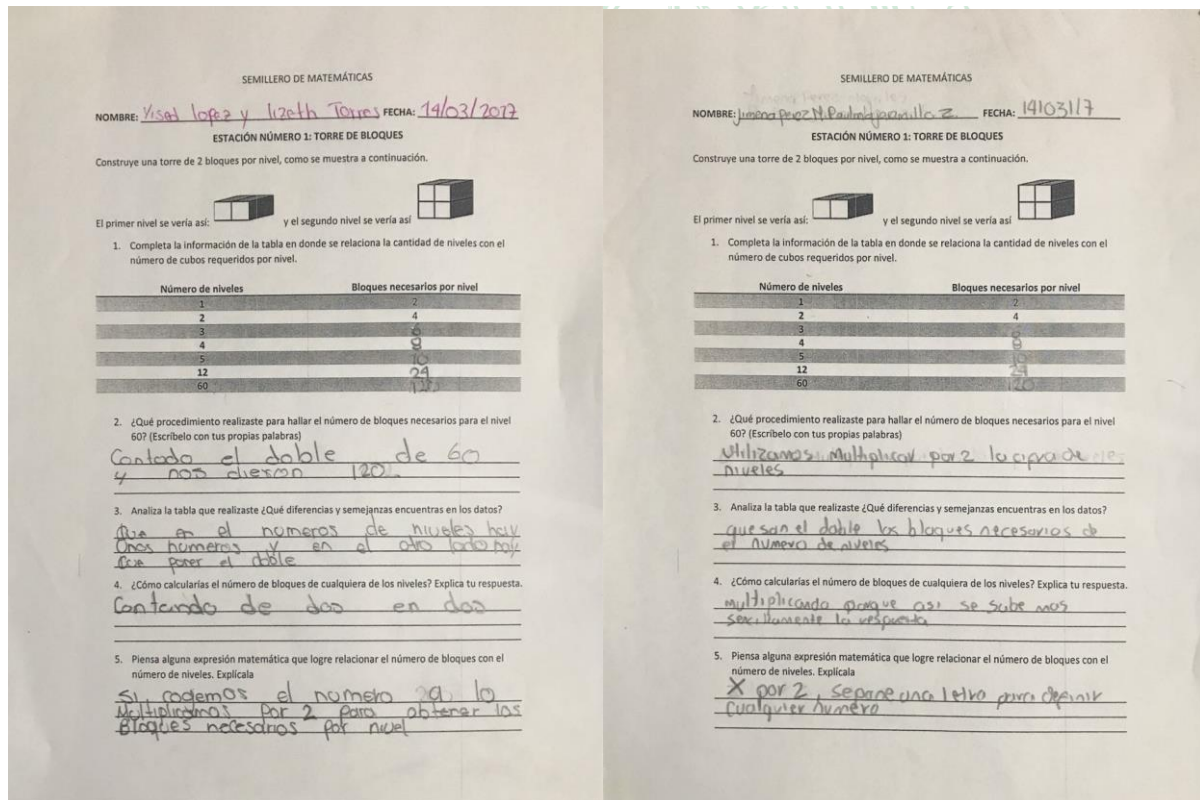 SEMILLERO DE MATEMÁTICAS
NOMBRE: Yisel lopez y lizeth Torres FECHA: 14/03/2017
ESTACIÓN NÚMERO 1: TORRE DE BLOQUES
Construye una torre de 2 bloques por nivel, como se muestra a continuación.
El primer nivel se vería así: y el segundo nivel se vería así
1. Completa la información de la tabla en donde se relaciona la cantidad de niveles con el
número de cubos requeridos por nivel.
Número de niveles Bloques necesarios por nivel
1 2
2 4
3 6
4 8
5 10
12 24
60 120
2. ¿Qué procedimiento realizaste para hallar el número de bloques necesarios para el nivel
60? (Escríbelo con tus propias palabras)
Contado el doble de 60
y nos dieron 120.
3. Analiza la tabla que realizaste ¿Qué diferencias y semejanzas encuentras en los datos?
Que en el numeros de niveles hay
Unos numeros y en el otro lado hay
que poner el doble
4. ¿Cómo calcularías el número de bloques de cualquiera de los niveles? Explica tu respuesta.
Contando de dos en dos
5. Piensa alguna expresión matemática que logre relacionar el número de bloques con el
número de niveles. Explícala
Si, el numero lo
Multiplicamos Por 2 para obtener los
Bloques necesarios por nivel
SEMILLERO DE MATEMÁTICAS
NOMBRE: Jimena Perez M. Paulina jaramillo Z. FECHA: 14/03/17
ESTACIÓN NÚMERO 1: TORRE DE BLOQUES
Construye una torre de 2 bloques por nivel, como se muestra a continuación.
El primer nivel se vería así: y el segundo nivel se vería así
1. Completa la información de la tabla en donde se relaciona la cantidad de niveles con el
número de cubos requeridos por nivel.
Número de niveles Bloques necesarios por nivel
1 2
2 4
3 6
4 8
5 10
12 24
60 120
2. ¿Qué procedimiento realizaste para hallar el número de bloques necesarios para el nivel
60? (Escríbelo con tus propias palabras)
Utilizamos Multiplicar por 2 la cifra de
niveles
3. Analiza la tabla que realizaste ¿Qué diferencias y semejanzas encuentras en los datos?
que son el doble los bloques necesarios de
el numero de niveles
4. ¿Cómo calcularías el número de bloques de cualquiera de los niveles? Explica tu respuesta.
Multiplicando porque asi se sabe mas
sencillamente la respuesta
5. Piensa alguna expresión matemática que logre relacionar el número de bloques con el
número de niveles. Explícala
X por 2, se pone una letra para definir
cualquier numero